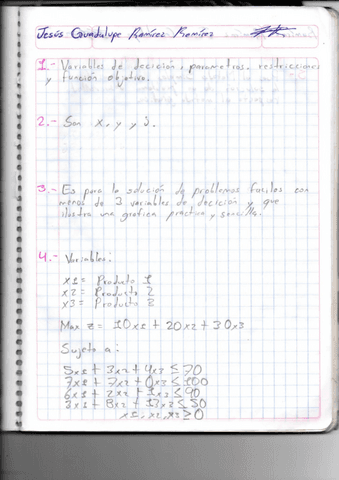 Jesús Guadalupe Ramírez Ramírez
1.- Variables de decición, parametros, restricciones
y función objetivo.
2.- Son x, y y 3.
3.- Es para la solución de problemas faciles con
menos de 3 variables de decición y que
ilustra una grafica practica y sencilla.
4.- Variables:
x1 = Producto 1
x2 = Producto 2
x3 = Producto 2
Max z = 10x1 + 20x2 + 30x3
Sujeto a:
5x1 + 3x2 + 4x3 ≤ 70
7x1 + 7x2 + 0x3 ≤ 100
6x1 + 2x2 + 1x3 ≤ 90
3x1 + 8x2 + x3 ≤ 50
x1, x2, x3 ≥ 0